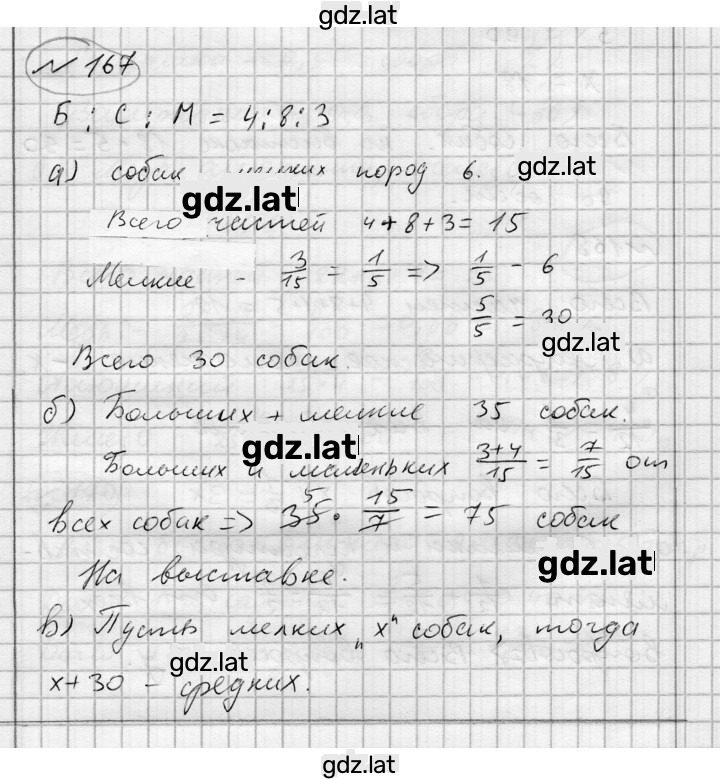 gdz.lat
№ 167
Б : С : М = 4:8:3
а) собак мелких пород 6. gdz.lat
gdz.lat
Всего частей 4+8+3=15
Мелкие - 3/15 = 1/5 => 1/5 - 6
5/5 = 30
gdz.lat
Всего 30 собак.
б) Больших + мелкие 35 собак.
gdz.lat
Больших и маленьких 3+4/15 = 7/15 от
всех собак => 35 5 · 15/7 = 75 собак
gdz.lat
На выставке.
в) Пусть мелких "x" собак, тогда
gdz.lat
x+30 - средних.
gdz.lat